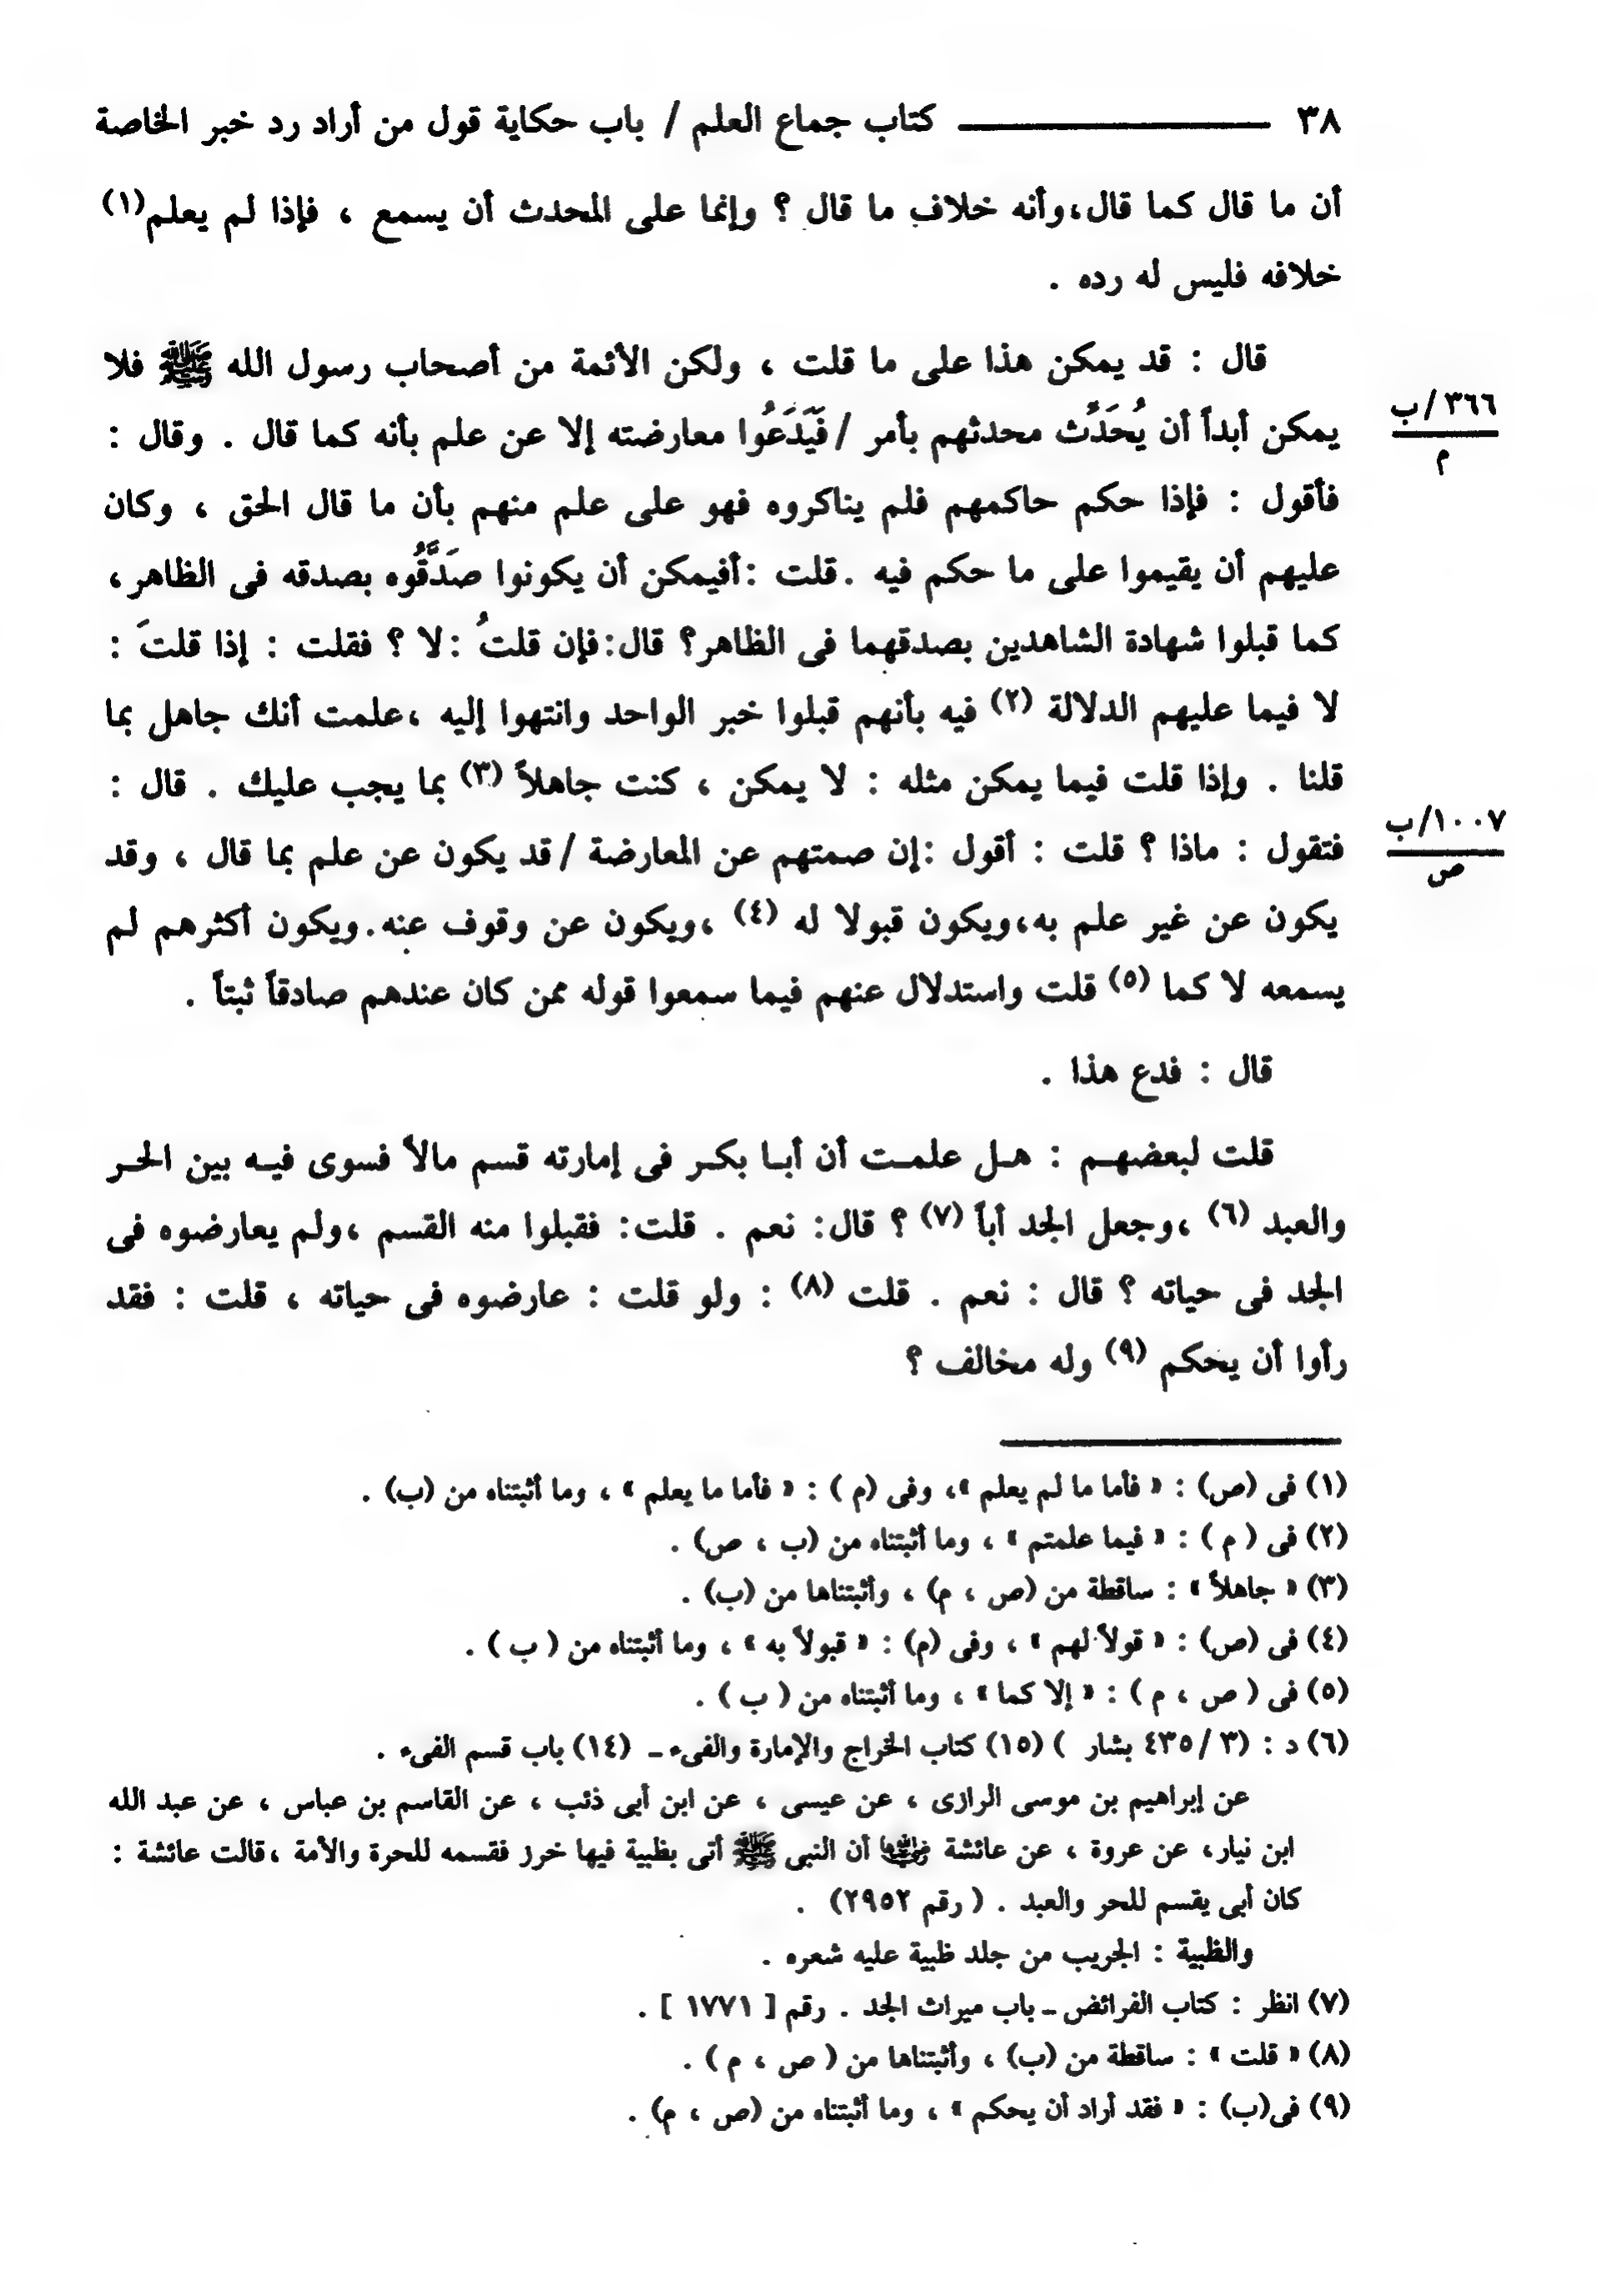 ٣٨ كتاب جماع العلم / باب حكاية قول من أراد رد خبر الخاصة
أن ما قال كما قال،وأنه خلاف ما قال ؟ وإنما على المحدث أن يسمع ، فإذا لم يعلم(١)
خلافه فليس له رده .
قال : قد يمكن هذا على ما قلت ، ولكن الأئمة من أصحاب رسول الله ﷺ فلا
٣٦٦/ب
م
يمكن أبداً أن يُحَدِّث محدثهم بأمر / فَيَدَعُوا معارضته إلا عن علم بأنه كما قال . وقال :
فأقول : فإذا حكم حاكمهم فلم يناكروه فهو على علم منهم بأن ما قال الحق ، وكان
عليهم أن يقيموا على ما حكم فيه .قلت :أفيمكن أن يكونوا صَدَّقُوه بصدقه فى الظاهر،
كما قبلوا شهادة الشاهدين بصدقهما فى الظاهر؟ قال:فإن قلتُ :لا ؟ فقلت : إذا قلتَ :
لا فيما عليهم الدلالة (٢) فيه بأنهم قبلوا خبر الواحد وانتهوا إليه ،علمت أنك جاهل بما
قلنا . وإذا قلت فيما يمكن مثله : لا يمكن ، كنت جاهلاً (٣) بما يجب عليك . قال :
١٠٠٧/ب
ص
فتقول : ماذا ؟ قلت : أقول :إن صمتهم عن المعارضة / قد يكون عن علم بما قال ، وقد
يكون عن غير علم به،ويكون قبولا له (٤) ،ويكون عن وقوف عنه.ويكون أكثرهم لم
يسمعه لا كما (٥) قلت واستدلال عنهم فيما سمعوا قوله ممن كان عندهم صادقاً ثبتاً .
قال : فدع هذا .
قلت لبعضهـم : هـل علمـت أن أبـا بكـر فى إمارته قسم مالاً فسوى فيـه بين الحـر
والعبد (٦) ،وجعل الجد أباً (٧) ؟ قال: نعم . قلت: فقبلوا منه القسم ،ولم يعارضوه فى
الجد فى حياته ؟ قال : نعم . قلت (٨) : ولو قلت : عارضوه فى حياته ، قلت : فقد
رأوا أن يحكم (٩) وله مخالف ؟
(١) فى (ص) : « فأما ما لم يعلم »، وفى (م ) : « فأما ما يعلم » ، وما أثبتناه من (ب) .
(٢) فى ( م ) : « فيما علمتم » ، وما أثبتناه من (ب ، ص) .
(٣) « جاهلاً » : ساقطة من (ص ، م) ، وأثبتناها من (ب) .
(٤) فى (ص) : « قولاً لهم » ، وفى (م) : « قبولاً به » ، وما أثبتناه من ( ب ) .
(٥) فى ( ص ، م ) : « إلا كما » ، وما أثبتناه من ( ب ) .
(٦) د : (٣ /٤٣٥ بشار ) (١٥) كتاب الخراج والإمارة والفىء ـ (١٤) باب قسم الفىء .
عن إبراهيم بن موسى الرازى ، عن عيسى ، عن ابن أبى ذئب ، عن القاسم بن عباس ، عن عبد الله
ابن نيار، عن عروة ، عن عائشة رضي الله عنها أن النبى ﷺ أتى بظبية فيها خرز فقسمه للحرة والأمة ،قالت عائشة :
كان أبى يقسم للحر والعبد . ( رقم ٢٩٥٢) .
والظبية : الجريب من جلد ظبية عليه شعره .
(٧) انظر : كتاب الفرائض ـ باب ميراث الجد . رقم [ ١٧٧١ ] .
(٨) « قلت » : ساقطة من (ب) ، وأثبتناها من ( ص ، م ) .
(٩) فى(ب) : « فقد أراد أن يحكم » ، وما أثبتناه من (ص ، م) .